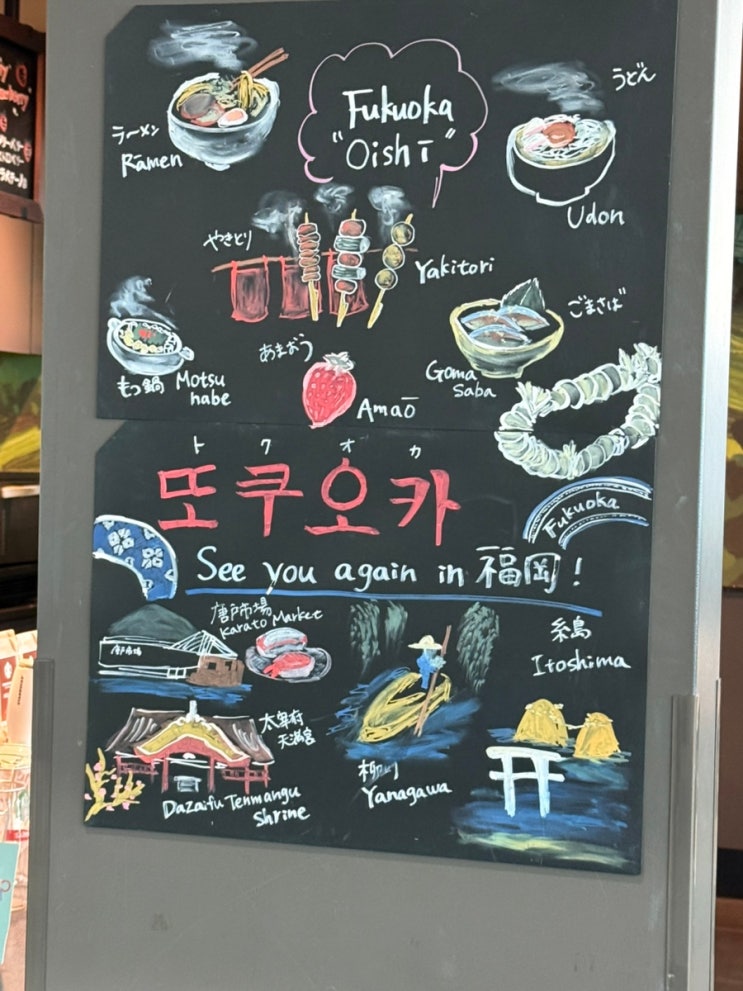 Fukuoka
"Oishī"
ラーメン
Rāmen
うどん
Udon
やきとり
Yakitori
もつ鍋 Motsu
nabe
あまおう
Amaō
ごまさば
Goma
Saba
トクオカ
또쿠오카
Fukuoka
See you again in 福岡!
唐戸市場
Karato Market
唐戸市場
糸島
Itoshima
太宰府
天満宮
Dazaifu Tenmangu
Shrine
柳川
Yanagawa